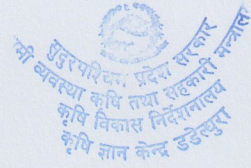 सुदुरपश्चिम प्रदेश सरकार
मी व्यवस्था कृषि तथा सहकारी मन्त्राल
कृषि विकास निर्देशनालय
कृषि ज्ञान केन्द्र डडेल्धुरा